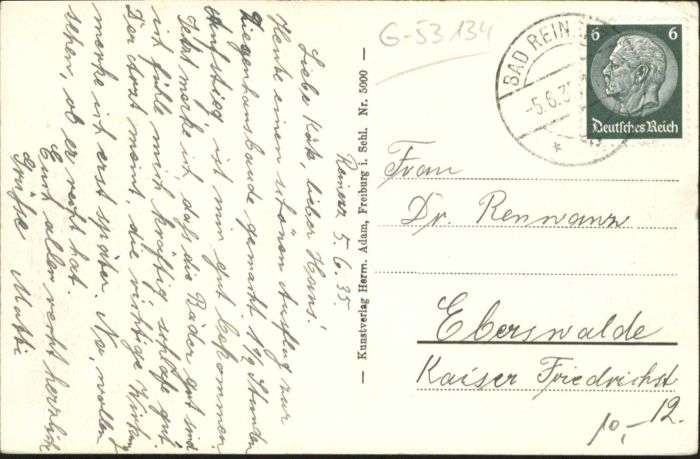 Reinerz 5.6.35.
Liebe Käte, lieber Hans!
Heute einen schönen Ausflug zur
Ziegenhausbaude gemacht 1½ Stunden
Aufstieg, ist mir gut bekommen
Jetzt merke ich daß die Bäder gut sind
ich fühle mich kräftig schlafe gut
Der Arzt meint, die richtige Wirkung
merke ich erst später. Na, wollen
sehen, ob er recht hat.
Euch allen recht herzliche
Grüße Mutti
— Kunstverlag Herm. Adam, Freiburg i. Schl. Nr. 5000 —
G-53134
BAD REIN
-5.6.35
6 6
Deutsches Reich
Frau
Dr. Rennwanz
Eberswalde
Kaiser Friedrichst
12.
10,-